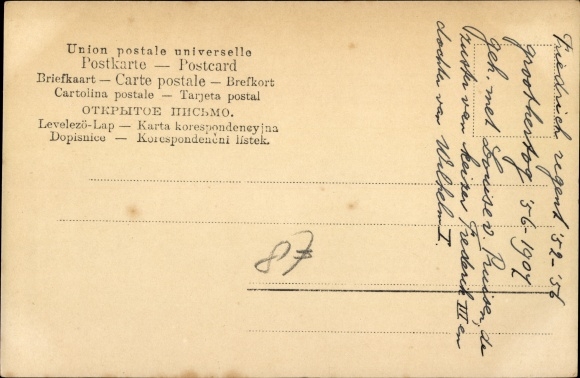 Union postale universelle
Postkarte — Postcard
Briefkaart — Carte postale — Brefkort
Cartolina postale — Tarjeta postal
ОТКРЫТОЕ ПИСЬМО.
Levelező-Lap — Karta korespondencyjna
Dopisnice — Korespondenční lístek.
Friedrich regent '52-'56
groothertog '56-1907
geh. met Louise v. Pruisen, de
zuster van keizer Frederik III en
dochter van Wilhelm I.
87